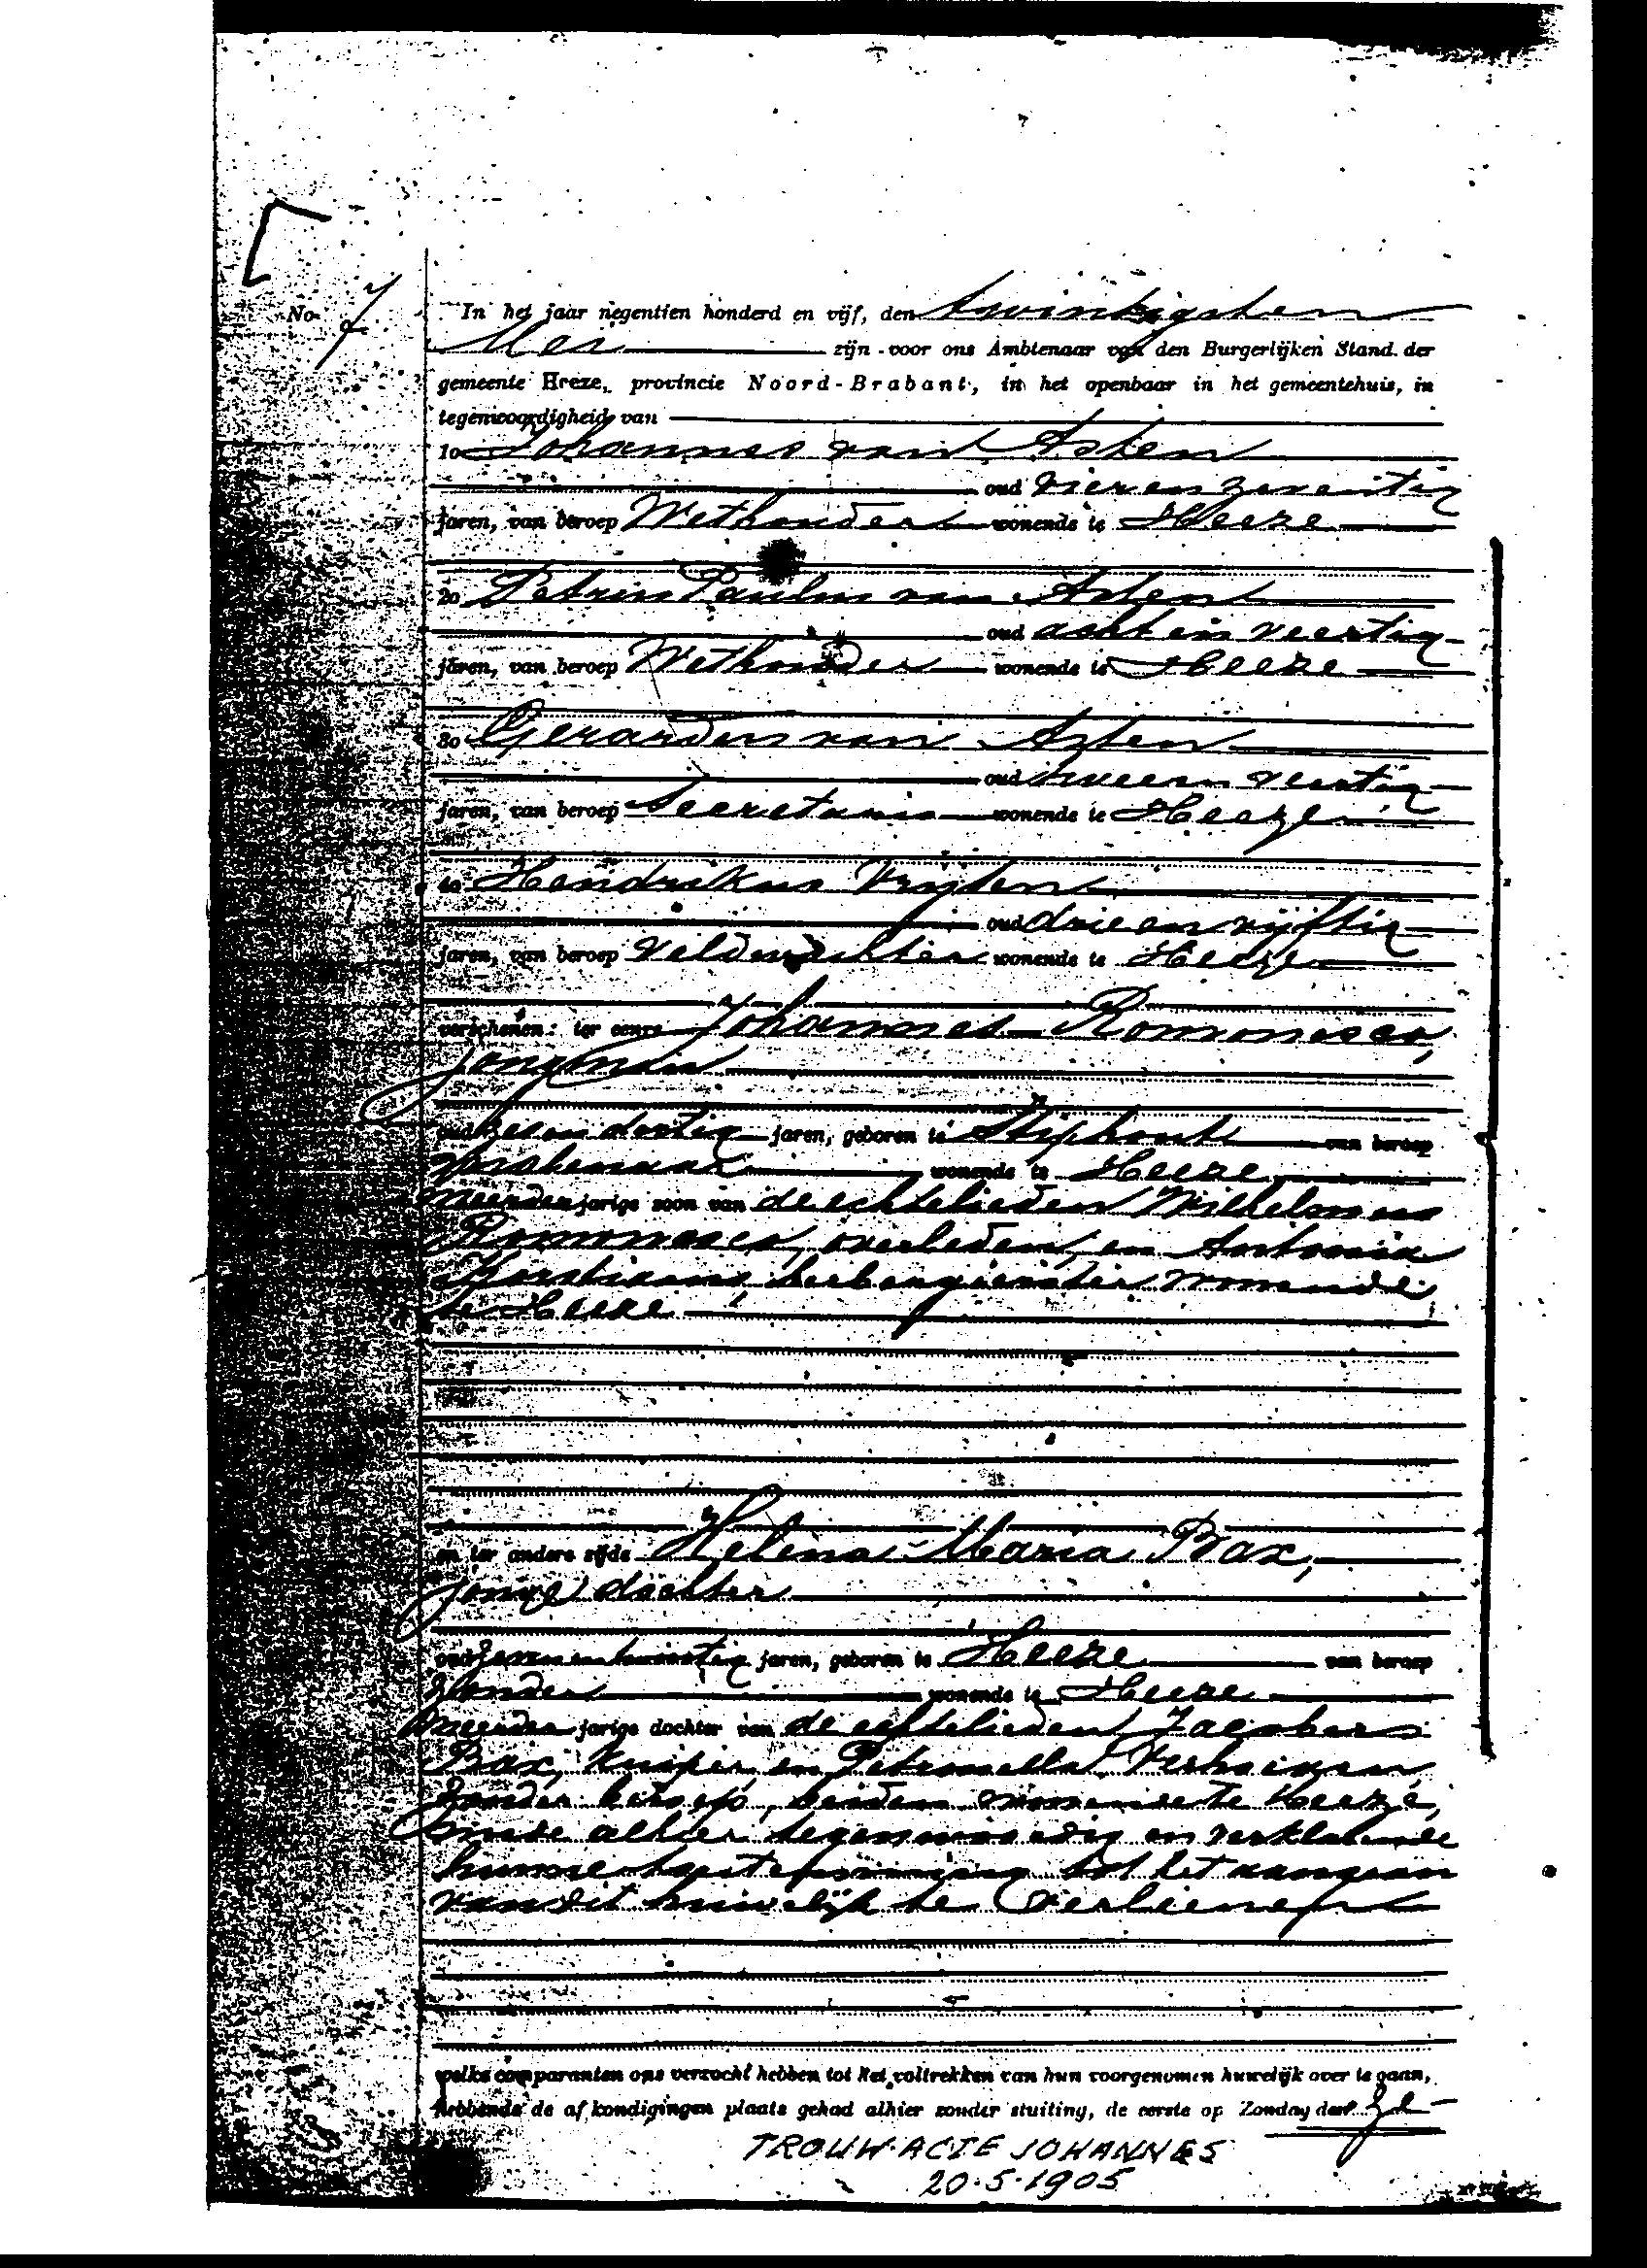 No 7
In het jaar negentien honderd en vijf, den twintigsten
Mei zijn voor ons Ambtenaar van den Burgerlijken Stand der
gemeente Heeze, provincie Noord-Brabant, in het openbaar in het gemeentehuis, in
tegenwoordigheid van
1o Johannes van Asten
oud vier en zeventig
jaren, van beroep Wethouder wonende te Heeze
2o Petrus Paulus van Asten
oud acht en veertig
jaren, van beroep Wethouder wonende te Heeze
3o Gerardus van Asten
oud twee en veertig
jaren, van beroep Secretaris wonende te Heeze
4o Hendrikus Vrijsen
oud drie en vijftig
jaren, van beroep Veldwachter wonende te Heeze
verschenen: ter eenre Johannes Romonesco,
jongman
oud zes en dertig jaren, geboren te Stiphout van beroep
wonende te Heeze
meerderjarige zoon van de echtelieden Wilhelmus
Romonesco, overleden, en Antonia
herbergierster wonende
te Heeze
en ter andere zijde Helena Maria Bax,
jonge dochter
oud zeven en twintig jaren, geboren te Heeze van beroep
zonder wonende te Heeze
meerderjarige dochter van de echtelieden Jacobus
Bax, Kuiper, en Petronella Verhoeven
zonder beroep, beiden wonende te Heeze,
beide alhier tegenwoordig en verklarende
hunne toestemming tot het aangaan
van dit huwelijk te verleenen
welke comparanten ons verzocht hebben tot het voltrekken van hun voorgenomen huwelijk over te gaan,
hebbende de afkondigingen plaats gehad alhier zonder stuiting, de eerste op Zondag den
TROUW-ACTE JOHANNES
20-5-1905